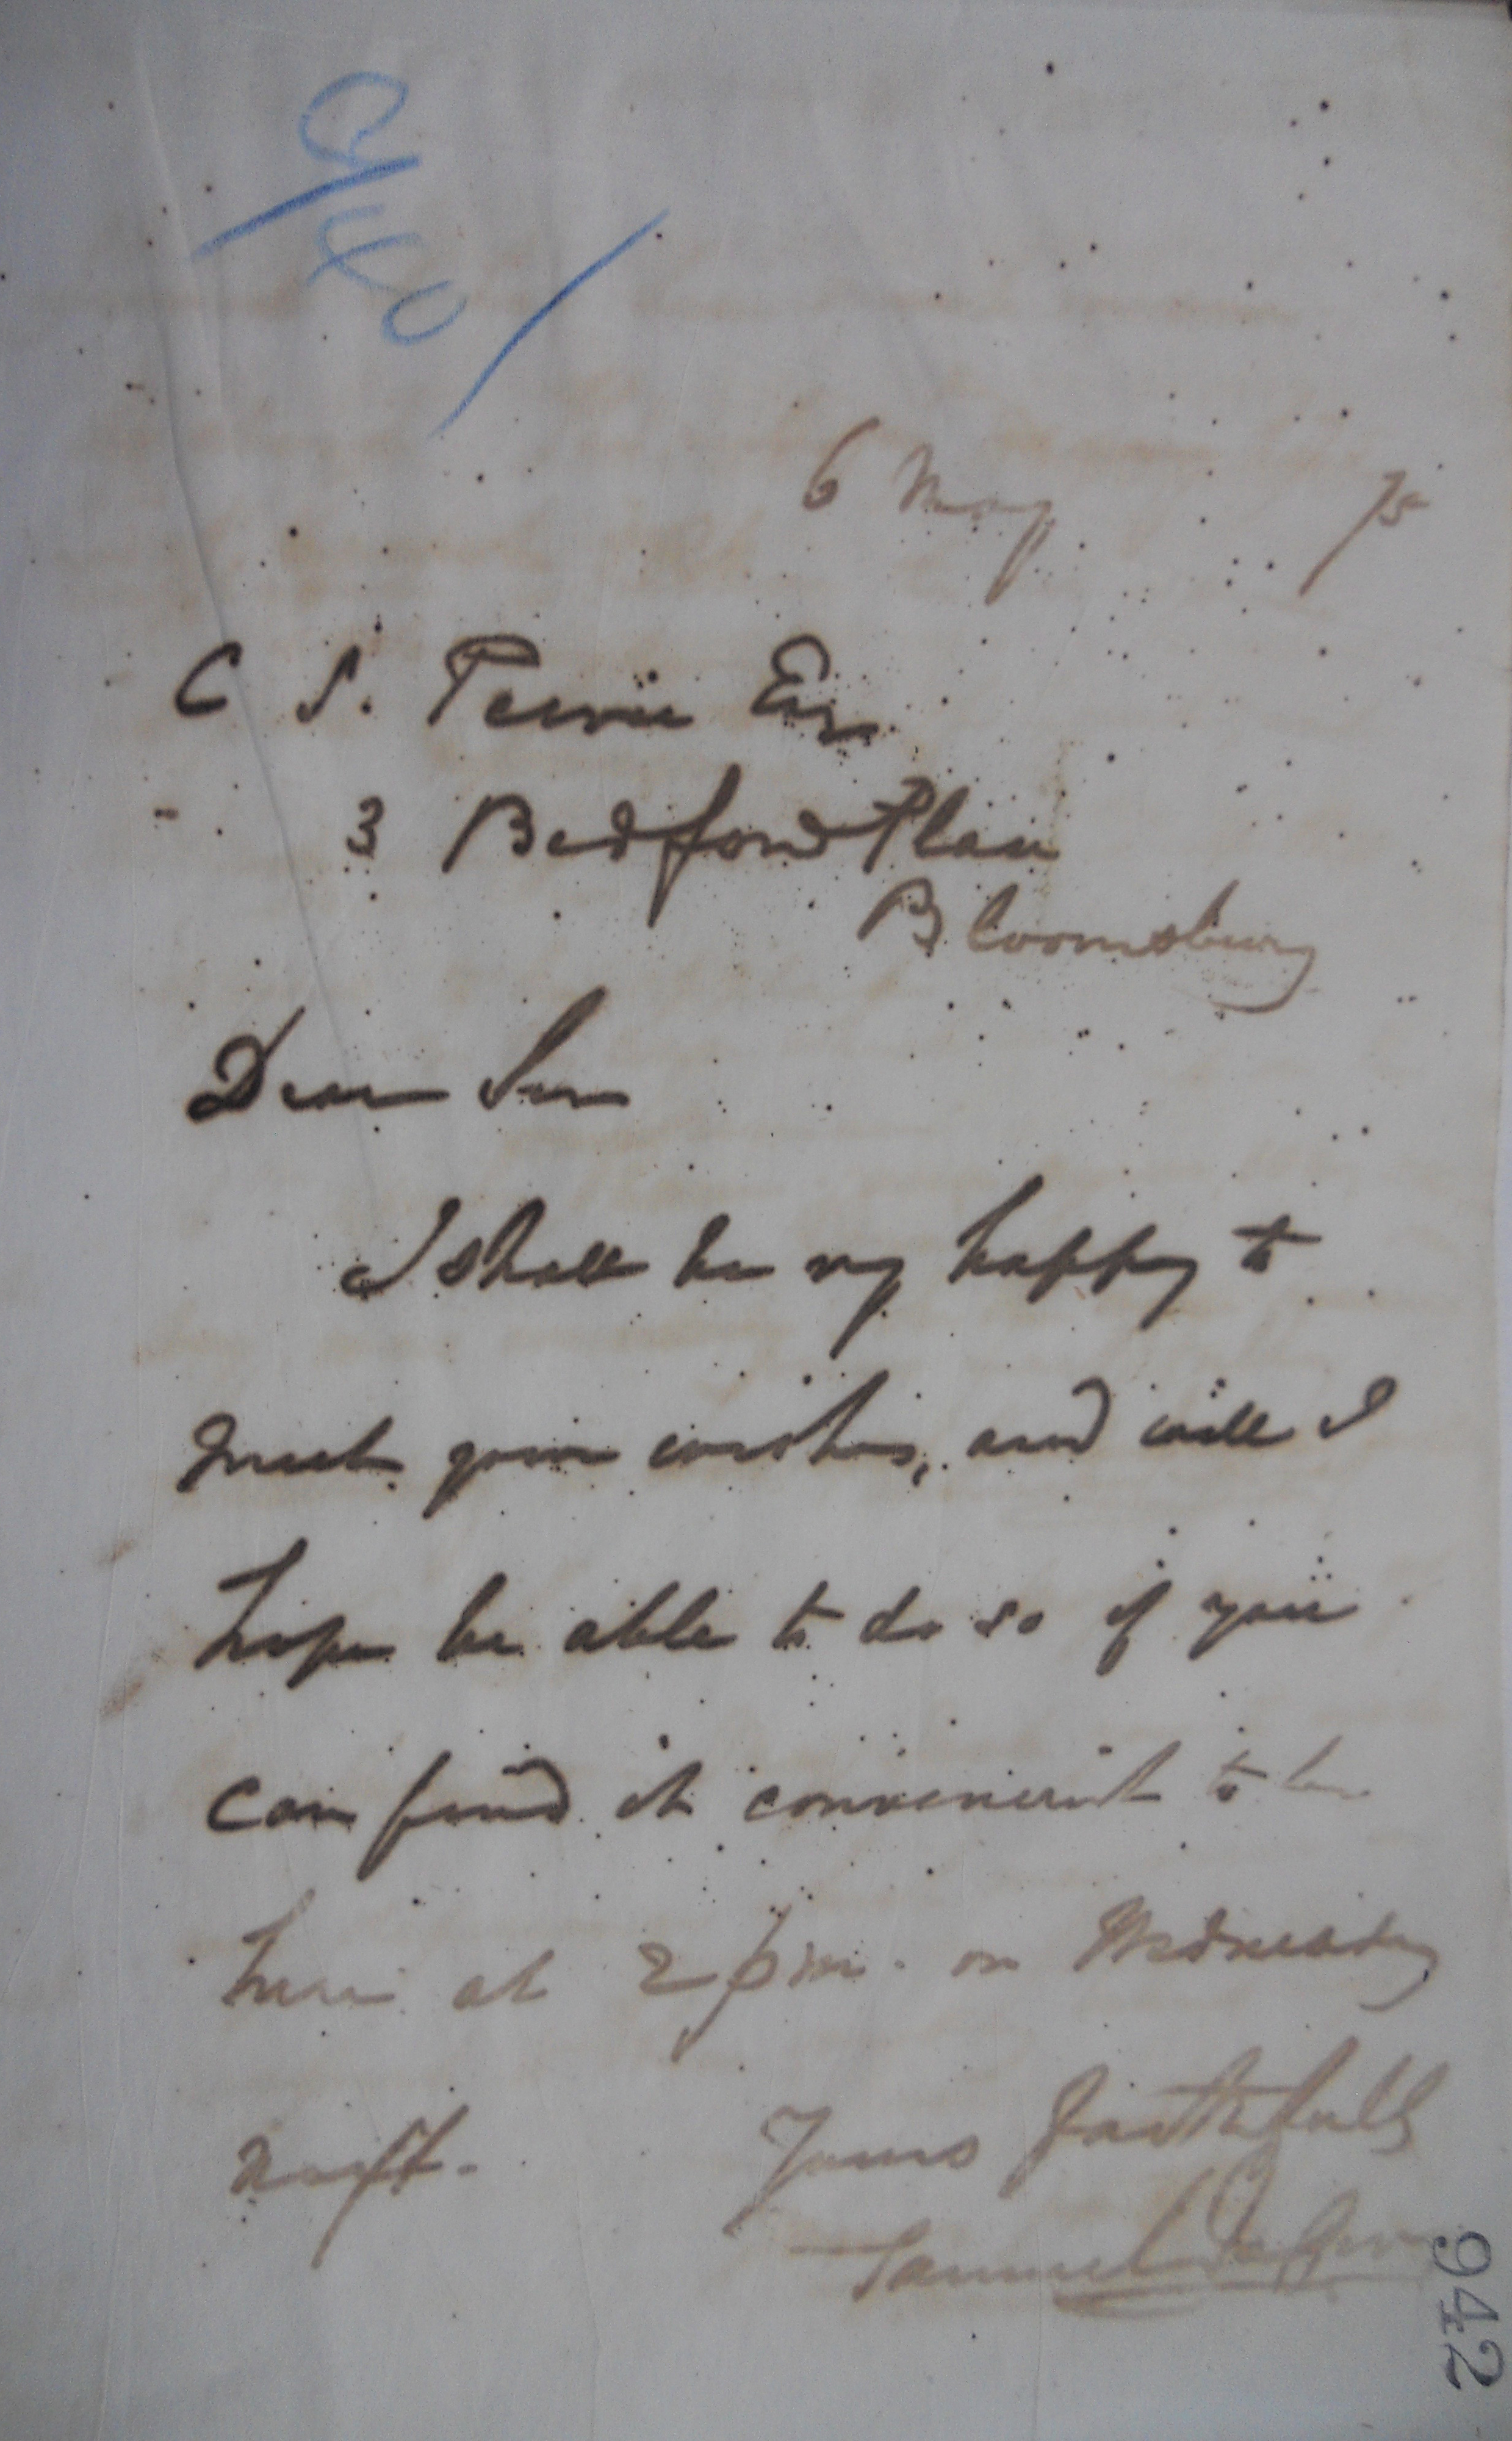 6 May 75
C S. Peirce Esq
3 Bedford Place
Bloomsbury
Dear Sir
I shall be very happy to
meet your wishes, and will I
hope be able to do so if you
can find it convenient to be
here at 2 pm. on Wednesday
next. Yours faithfully
Samuel
942